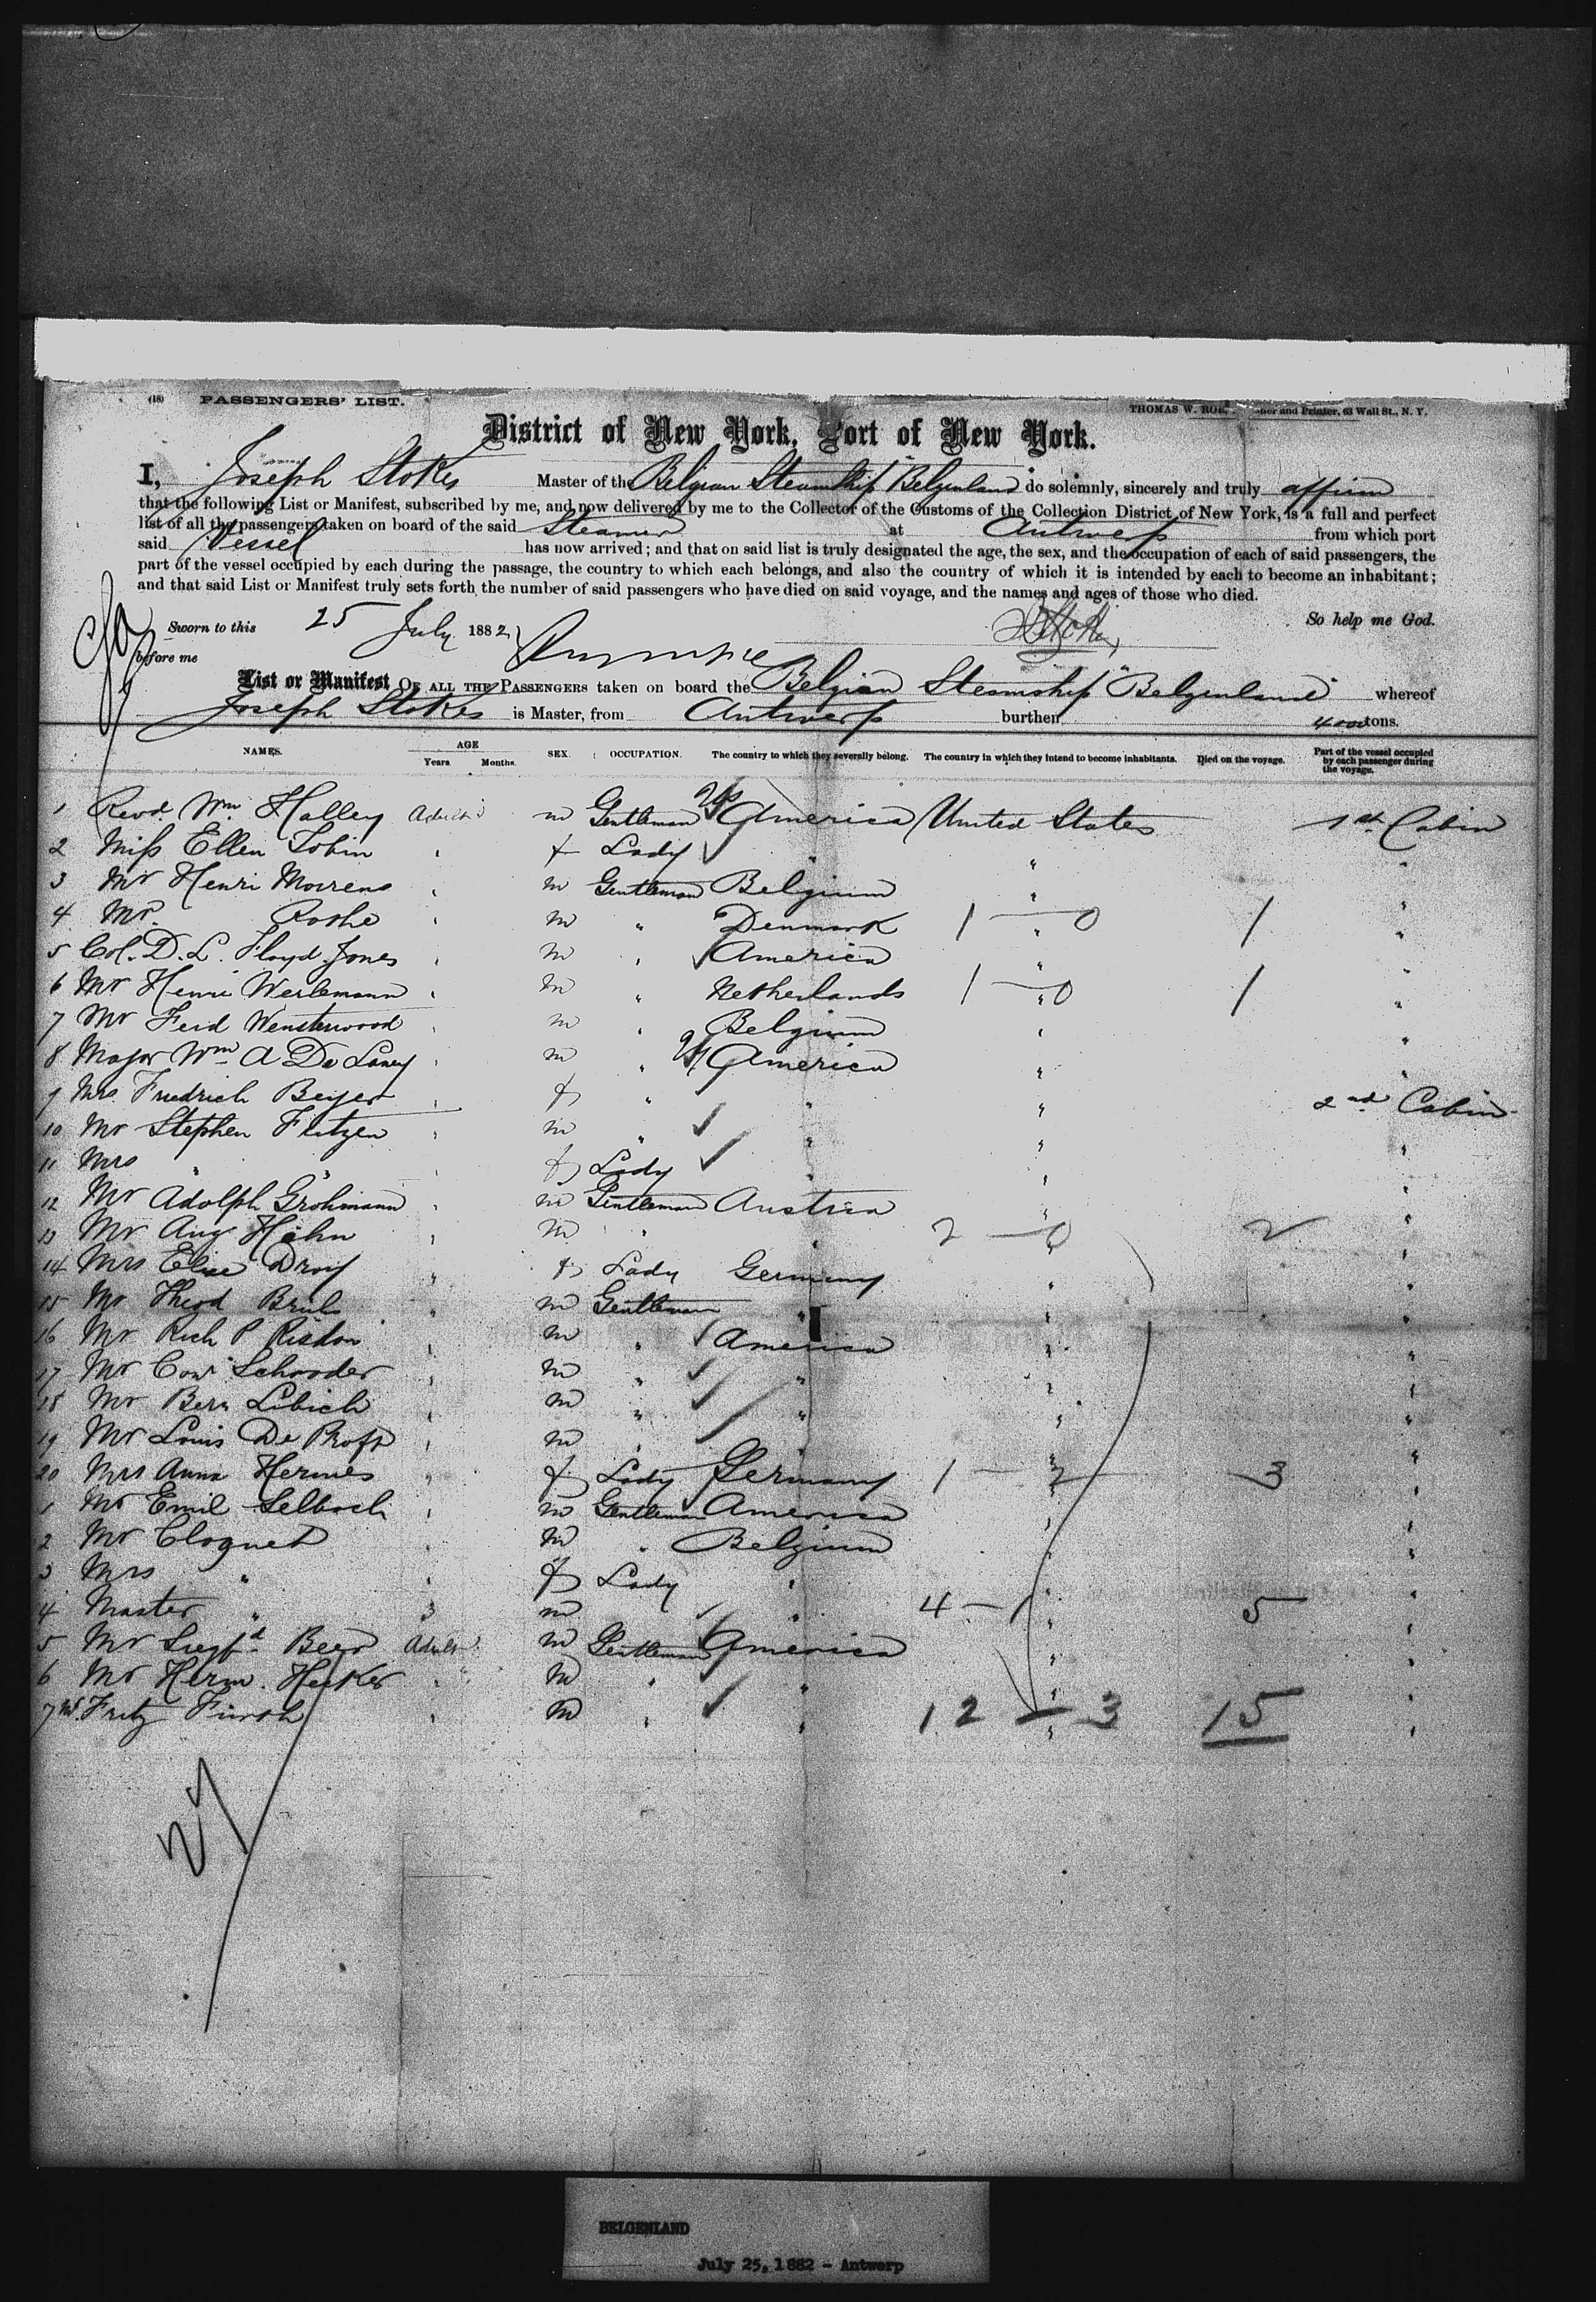 (18) PASSENGERS' LIST.
THOMAS W. and Printer, 63 Wall St., N. Y.
District of New York, Port of New York.
I, Joseph Stokes Master of the Belgian Steamship "Belgenland" do solemnly, sincerely and truly affirm
that the following List or Manifest, subscribed by me, and now delivered by me to the Collector of the Customs of the Collection District of New York, is a full and perfect
list of all the passengers taken on board of the said Steamer at Antwerp from which port
said Vessel has now arrived; and that on said list is truly designated the age, the sex, and the occupation of each of said passengers, the
part of the vessel occupied by each during the passage, the country to which each belongs, and also the country of which it is intended by each to become an inhabitant;
and that said List or Manifest truly sets forth the number of said passengers who have died on said voyage, and the names and ages of those who died.
So help me God.
Sworn to this 25 July 1882
before me
List or Manifest OF ALL THE PASSENGERS taken on board the Belgian Steamship "Belgenland" whereof
Joseph Stokes is Master, from Antwerp burthen 4000 tons.
NAMES. AGE Years Months. SEX. OCCUPATION. The country to which they severally belong. The country in which they intend to become inhabitants. Died on the voyage. Part of the vessel occupied by each passenger during the voyage.
1 Revd. Wm. Halley Adult m Gentleman America United States 1st Cabin
2 Miss Ellen Tobin " f Lady " " "
3 Mr Henri Morrens " m Gentleman Belgium " "
4 Mr. " m " Denmark " 1 — 0 1 "
5 Col. D. L. Floyd Jones " m " America " "
6 Mr Henri Werlemann " m " Netherlands " 1 — 0 1 "
7 Mr Ferd " m " Belgium " "
8 Major Wm A De Laney " m " America " "
9 Mrs. Friedrich Beyer " f " " " 2nd Cabin
10 Mr Stephen Flitzen " m " " " "
11 Mrs " " " f Lady " " "
12 Mr Adolph Grohmann " m Gentleman Austria " "
13 Mr Aug Hahn " m " " " 2 — 0 2 "
14 Mrs Elise " f Lady Germany " "
15 Mr Theod Bruhs " m Gentleman " " "
16 Mr Rich P Risdon " m " America " "
17 Mr Schroder " m " " " "
18 Mr Bern Libich " m " " " "
19 Mr Louis De Proft " m " " " "
20 Mrs Anna Hermes " f Lady Germany " 1 — 2 3 "
1 Mr Emil Selbach " m Gentleman America " "
2 Mr Cloquet " m " Belgium " "
3 Mrs " " f Lady " " "
4 Master " 3 m " " 4 — 1 5 "
5 Mr Siegfd Beer Adult m Gentleman America " "
6 Mr Herm. Hecker " m " " " "
7 Mr. Fritz Fursh " m " " " 12 — 3 15 "
27
BELGENLAND
July 25, 1882 - Antwerp